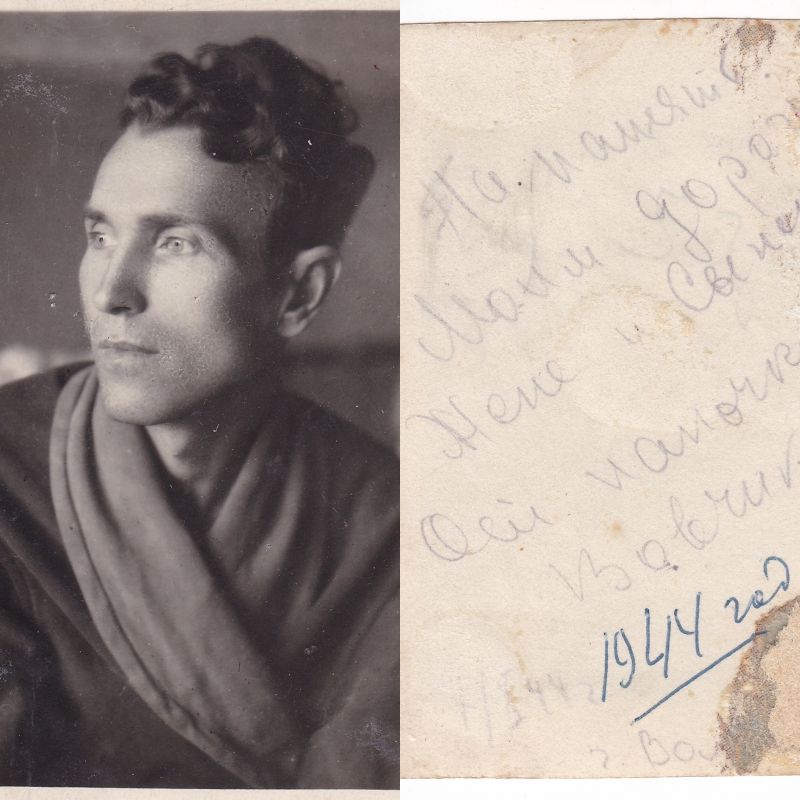 На память
Моим дорог
Жене и Сын
Оей папочк
Вовчик
1944 год
г. Вол